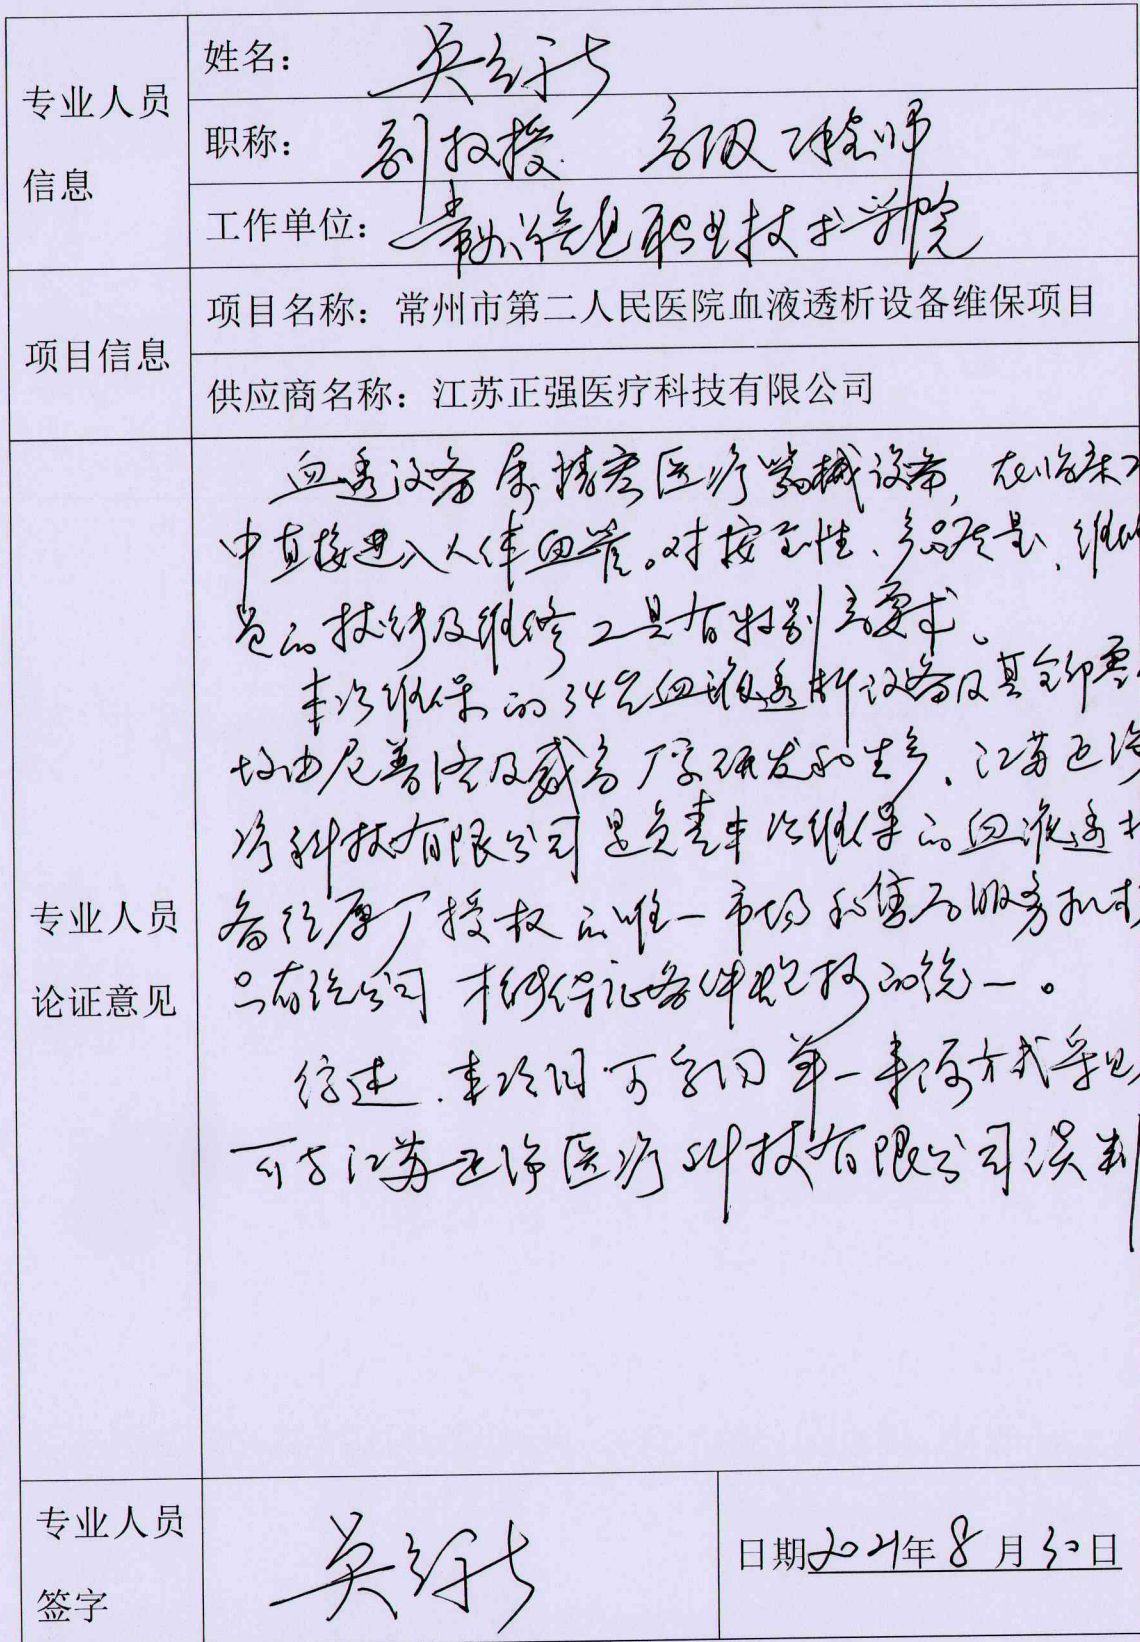 专业人员
信息
姓名：吴
职称：副教授 高级工程师
工作单位：常州信息职业技术学院
项目信息
项目名称：常州市第二人民医院血液透析设备维保项目
供应商名称：江苏正强医疗科技有限公司
专业人员
论证意见
血透设备属精密医疗器械设备，在临床
中直接进入人体血管。对安全性、产品质量、维修
员的技术及维修工具有特别高要求。
本次维保的34台血液透析设备及其全部零
均由尼普洛及威高厂家研发和生产、江苏
疗科技有限公司是负责本次维保的血液透析
备经原厂授权的唯一市场和售后服务机构
只有该公司才能保证备件 的统一。
综述，本项目可采用单一来源方式采购
可与江苏 医疗科技有限公司谈判
专业人员
签字
吴
日期2021年8月30日